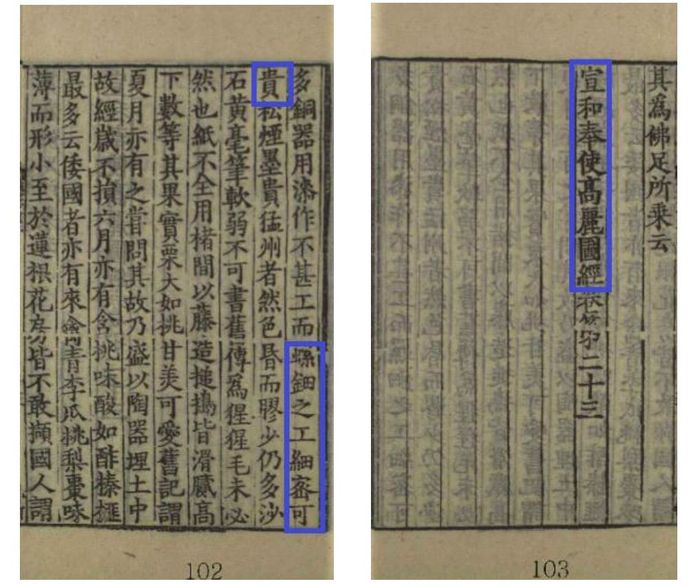 多銅器用漆作不甚工而螺鈿之工細密可
貴松煙墨貴猛州者然色昏而膠少仍多沙
石黃毫筆軟弱不可書舊傳為猩猩毛未必
然也紙不全用楮間以藤造搥搗皆滑膩高
下數等其果實栗大如桃甘美可愛舊記謂
夏月亦有之嘗問其故乃盛以陶器埋土中
故經歲不損六月亦有含桃味酸如酢榛榧
最多云倭國者亦有來禽青李瓜桃梨棗味
薄而形小至於蓮根花房皆不敢擷國人謂
102
其為佛足所乘云
宣和奉使高麗國經卷第二十三
103